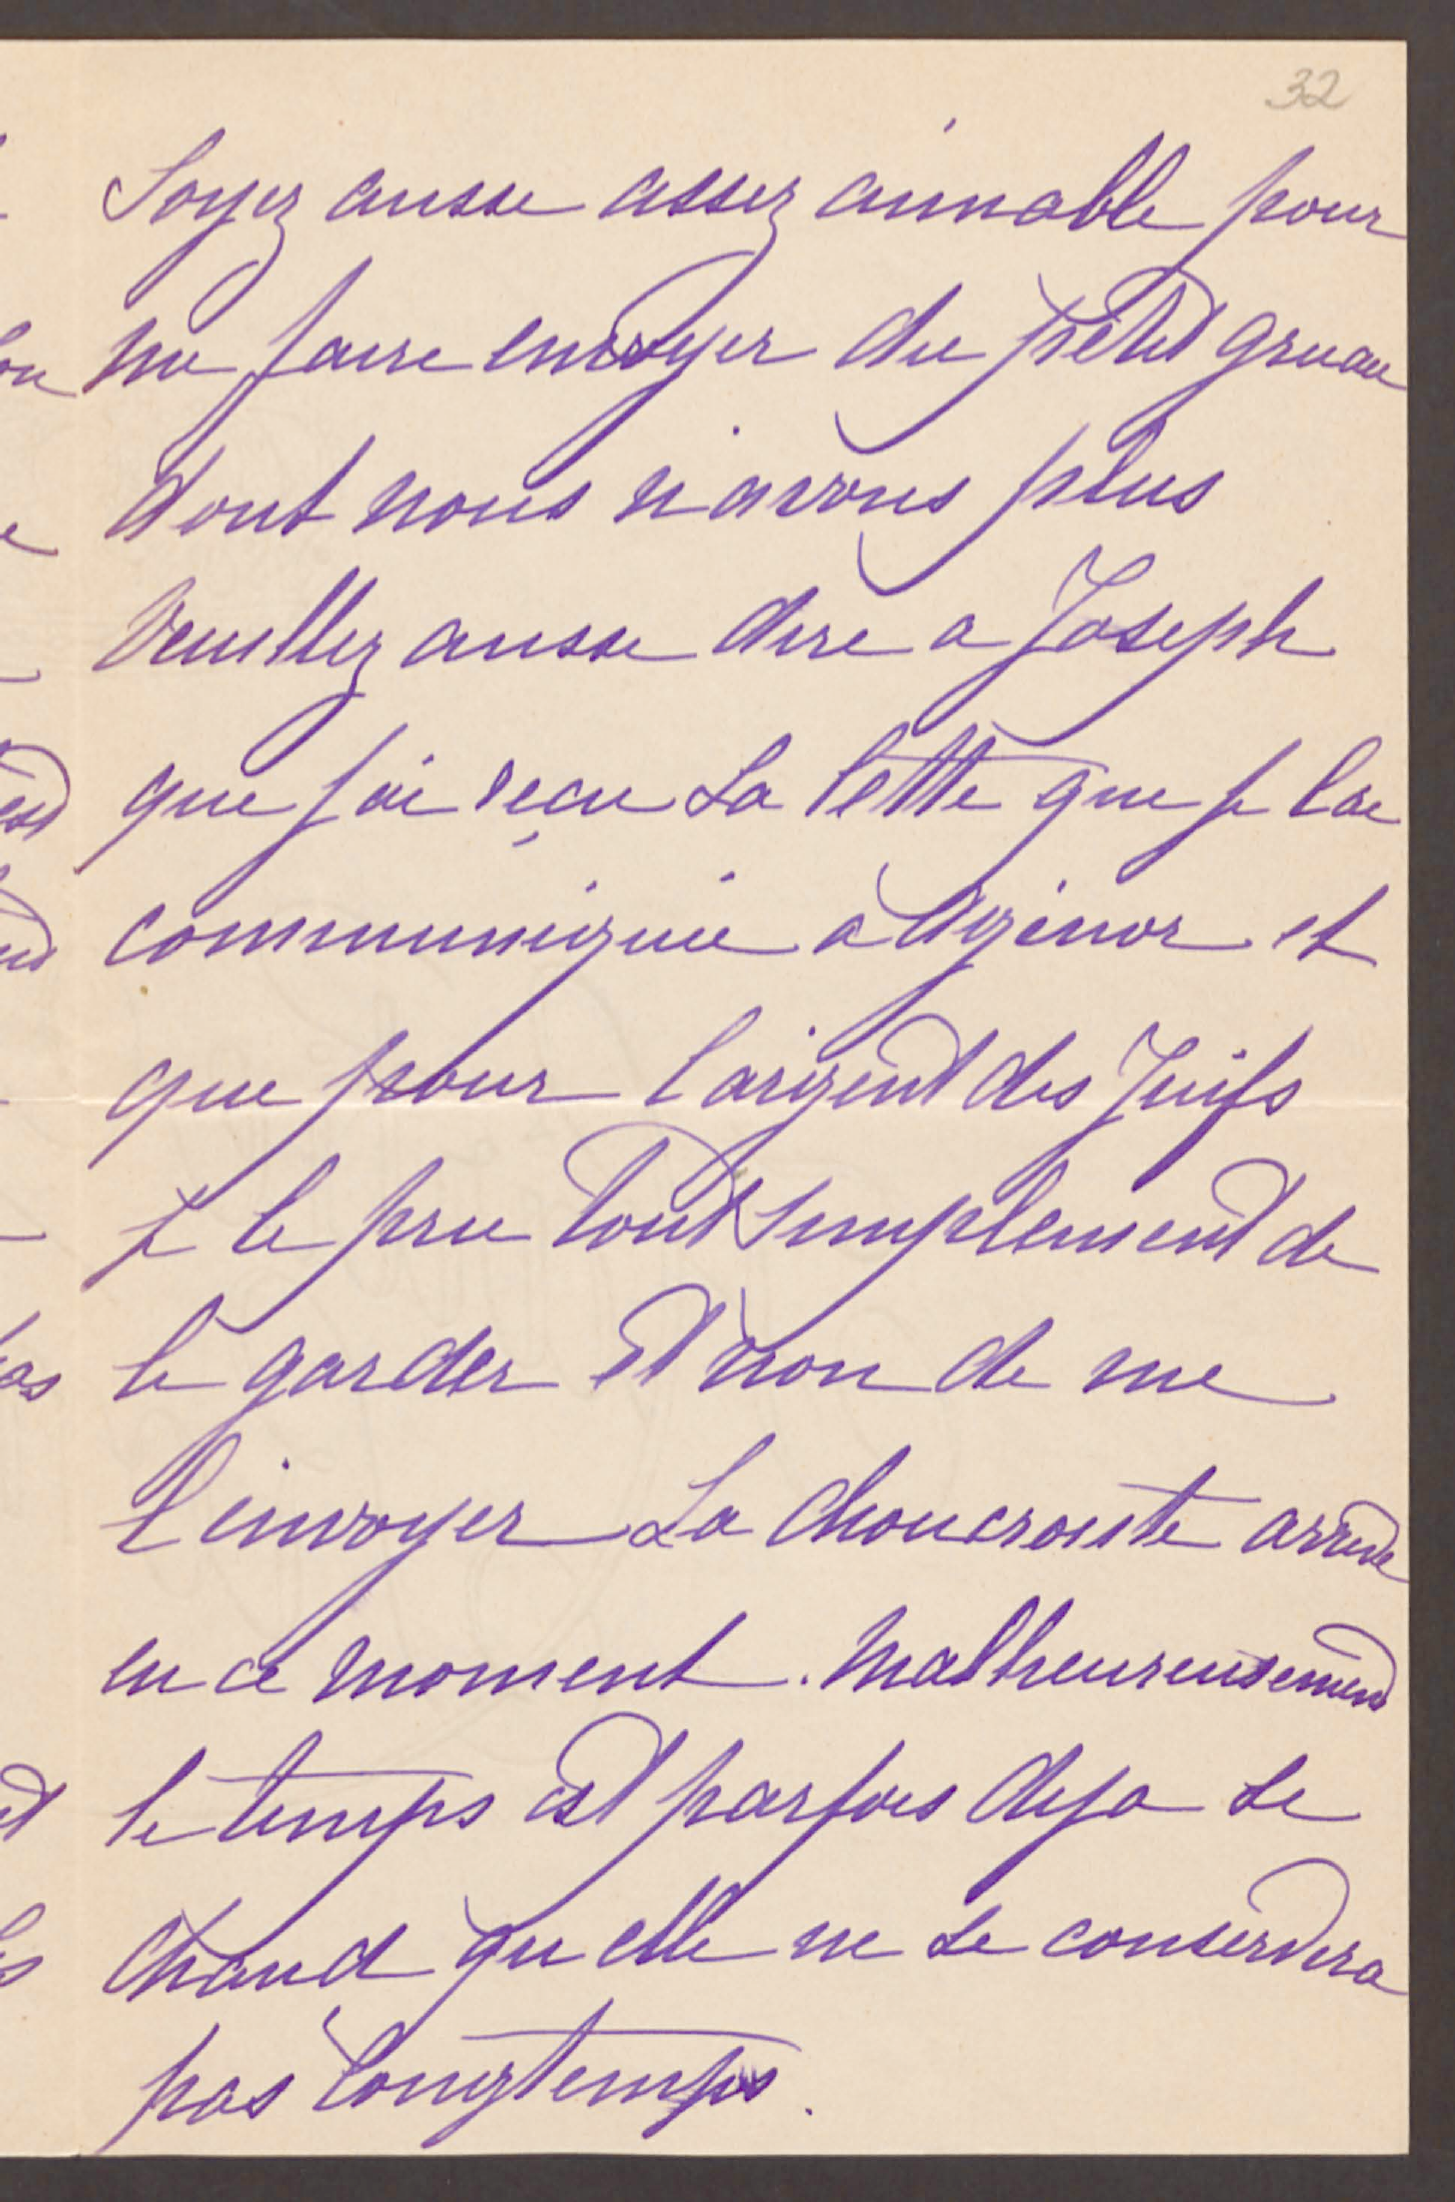 32
Soyez aussi assez aimable pour
me faire envoyer du petit gruau
dont nous n'avons plus
Veuillez aussi dire a Joseph
que j'ai reçu sa lettre que je l'ai
communiquée a Agénor et
que pour l'argent des Juifs
je le prie tout simplement de
le garder et non de me
l'envoyer La choucroute arrive
en ce moment. Malheureusement
le temps est parfois deja si
chaud qu'elle ne se conservera
pas longtemps.